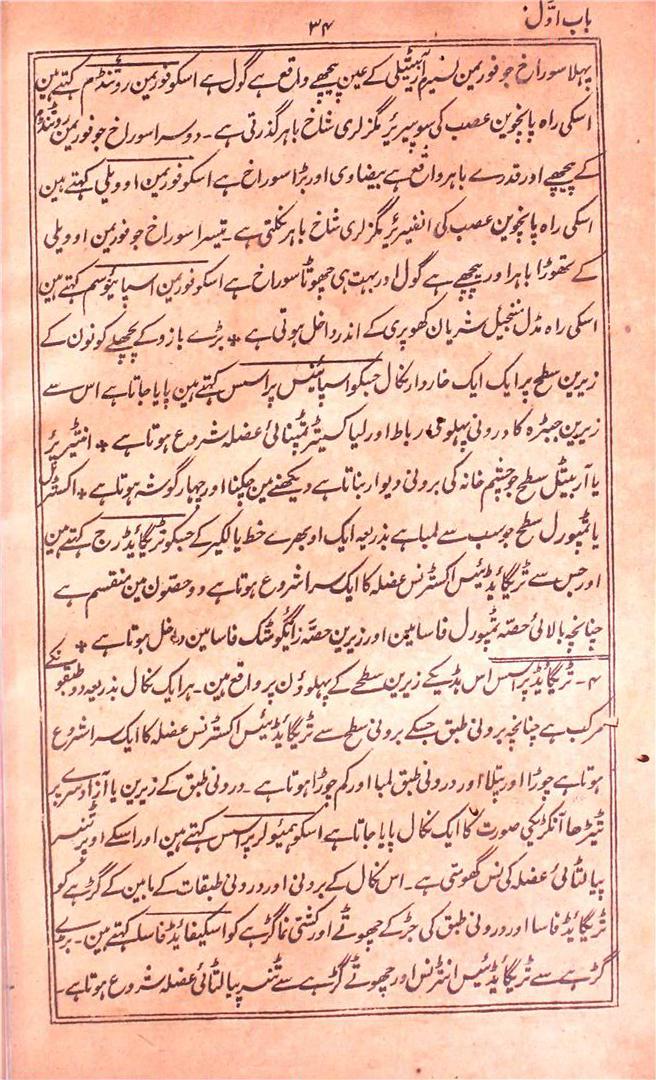 باب اوّل
۳۴
پہلا سوراخ جو فورمین لسیرم آربیٹیلی کے عین پیچھے واقع ہے گول ہے اسکو فورمین روٹنڈم کہتے ہین
اسکی راہ پانچوین عصب کی سوپیریر مگزلری شاخ باہر گذرتی ہے۔ دوسرا سوراخ جو فورمین روٹنڈم
کے پیچھے اور قدرے باہر واقع ہے بیضاوی اور بڑا سوراخ ہے اسکو فورمین اوویلی کہتے ہین
اسکی راہ پانچوین عصب کی انفیریر مگزلری شاخ باہر نکلتی ہے۔ تیسرا سوراخ جو فورمین اوویلی
کے تھوڑا باہر اور پیچھے ہے گول اور بہت ہی چھوٹا سوراخ ہے اسکو فورمین اسپاینوسم کہتے ہین
اسکی راہ مڈل منجیل شریان کھوپری کے اندر داخل ہوتی ہے * بڑے بازو کے پچھلے کونون کے
زیرین سطح پر ایک ایک خاردار نکال جسکو اسپاینس پراسس کہتے ہین پایا جاتا ہے اس سے
زیرین جبڑہ کا درونی پہلوئی رباط اور لیاکسیٹر ٹمپنائی عضلہ شروع ہوتا ہے * انٹیریر
یا آربیٹل سطح جو چشم خانہ کی برونی دیوار بناتا ہے دیکھنے مین چکنا اور چہار گوشہ ہوتا ہے * اکسٹرنل
یا ٹمپورل سطح جو سب سے لمبا ہے بذریعہ ایک اوبھرے خط یا لکیر کے جسکو ٹریگایڈ رج کہتے ہین
اور جس سے ٹریگایڈیئس اکسٹرنس عضلہ کا ایک سرا شروع ہوتا ہے دو حصون مین منقسم ہے
چنانچہ بالائی حصّہ ٹمپورل فاسا مین اور زیرین حصّہ زائگومٹک فاسا مین داخل ہوتا ہے *
۴ – ٹریگایڈ پراسس اس ہڈیکے زیرین سطح کے پہلوؤن پر واقع ہین۔ ہر ایک نکال بذریعہ دو طبقونکے
مرکب ہے چنانچہ برونی طبق جسکے برونی سطح سے ٹریگایڈیئس اکسٹرنس عضلہ کا ایک سرا شروع
ہوتا ہے چوڑا اور پتلا اور درونی طبق لمبا اور کم چوڑا ہوتا ہے۔ درونی طبق کے زیرین یا آزاد سرے پر
ٹیڑھا آنکڑیکی صورت کا ایک نکال پایا جاتا ہے اسکو ہمیولر پراسس کہتے ہین اور اسکے اوپر ٹنسر
پیالٹائی عضلہ کی نس گھومتی ہے۔ اس نکال کے برونی اور درونی طبقات کے مابین کے گڑہے کو
ٹریگایڈ فاسا اور درونی طبق کی جڑ کے چھوٹے اور کشتی نما گڑہے کو اسکیفائیڈ فاسا کہتے ہین۔ بڑے
گڑہے سے ٹریگایڈیئس انٹرنس اور چھوٹے گڑہے سے ٹنسر پیالٹائی عضلہ شروع ہوتا ہے۔